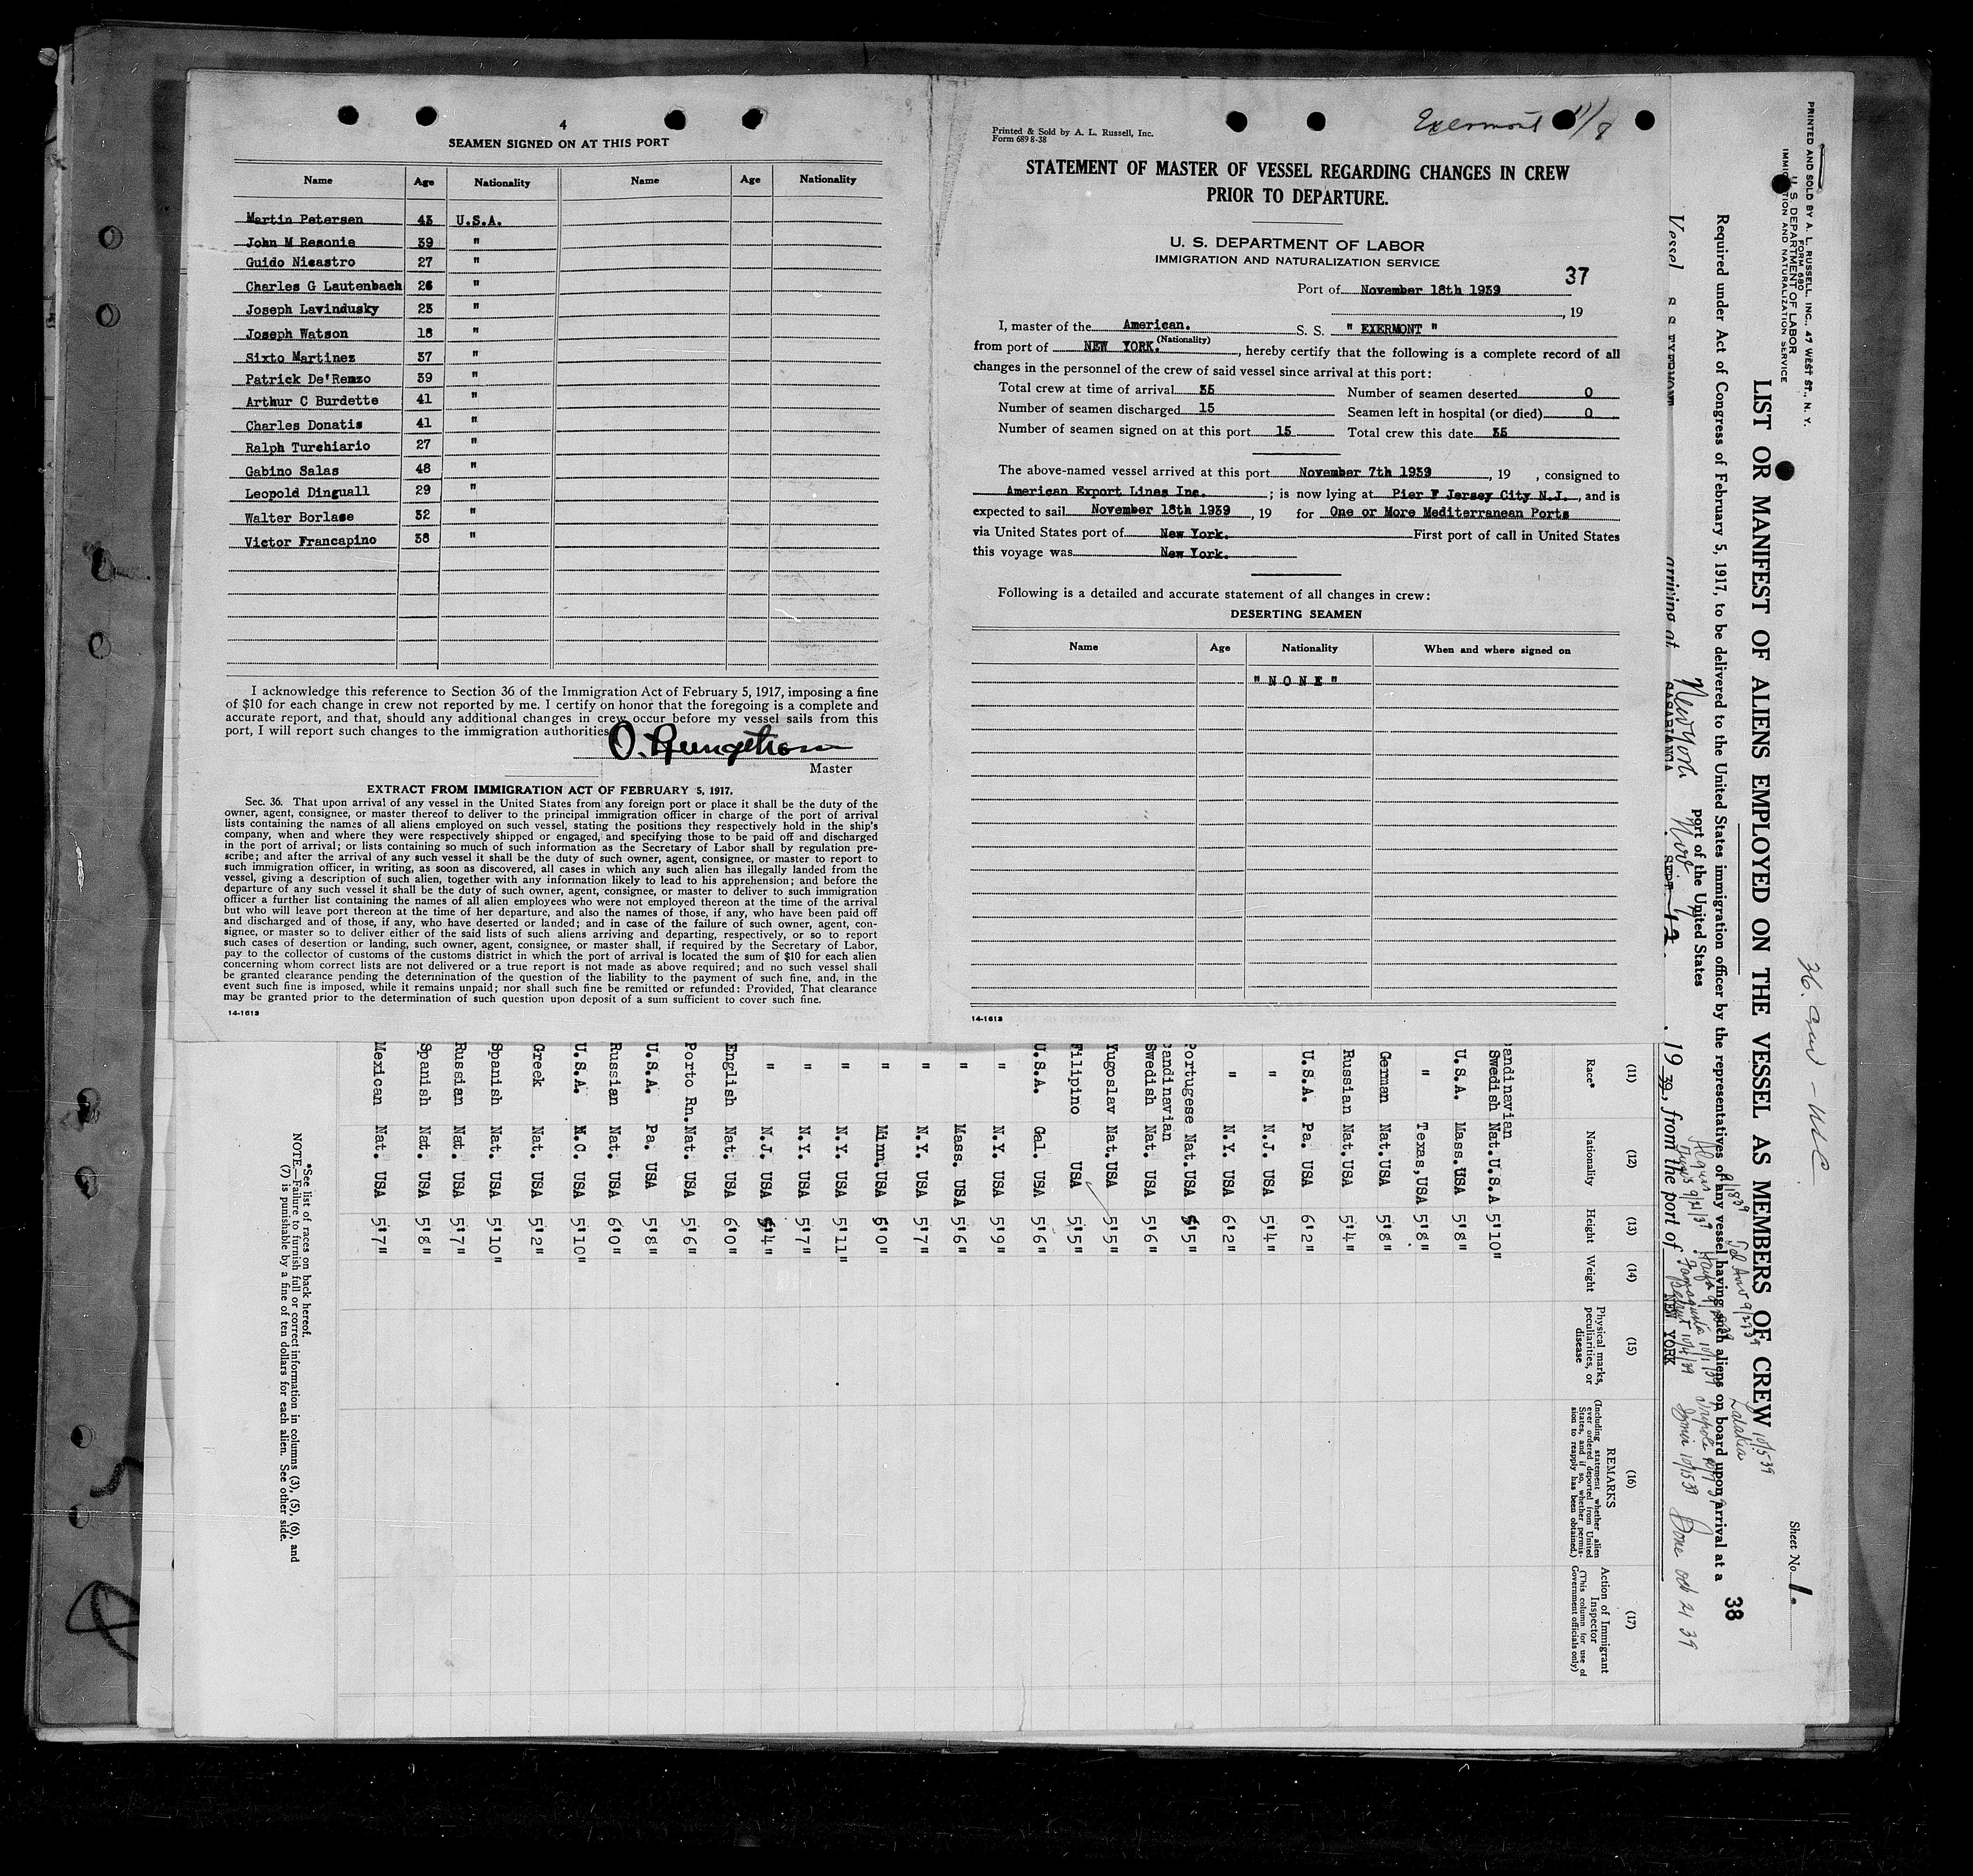 4
SEAMEN SIGNED ON AT THIS PORT
Name Age Nationality Name Age Nationality
Martin Petersen 43 U.S.A.
John M Resonie 39 "
Guido Nicastro 27 "
Charles G Lautenbach 26 "
Joseph Lavindusky 23 "
Joseph Watson 18 "
Sixto Martinez 37 "
Patrick De'Renzo 39 "
Arthur C Burdette 41 "
Charles Donatis 41 "
Ralph Turchiario 27 "
Gabino Salas 48 "
Leopold Dinguall 29 "
Walter Borlase 32 "
Victor Francapino 38 "
I acknowledge this reference to Section 36 of the Immigration Act of February 5, 1917, imposing a fine
of $10 for each change in crew not reported by me. I certify on honor that the foregoing is a complete and
accurate report, and that, should any additional changes in crew occur before my vessel sails from this
port, I will report such changes to the immigration authorities
Master
EXTRACT FROM IMMIGRATION ACT OF FEBRUARY 5, 1917.
Sec. 36. That upon arrival of any vessel in the United States from any foreign port or place it shall be the duty of the
owner, agent, consignee, or master thereof to deliver to the principal immigration officer in charge of the port of arrival
lists containing the names of all aliens employed on such vessel, stating the positions they respectively hold in the ship's
company, when and where they were respectively shipped or engaged, and specifying those to be paid off and discharged
in the port of arrival; or lists containing so much of such information as the Secretary of Labor shall by regulation pre-
scribe; and after the arrival of any such vessel it shall be the duty of such owner, agent, consignee, or master to report to
such immigration officer, in writing, as soon as discovered, all cases in which any such alien has illegally landed from the
vessel, giving a description of such alien, together with any information likely to lead to his apprehension; and before the
departure of any such vessel it shall be the duty of such owner, agent, consignee, or master to deliver to such immigration
officer a further list containing the names of all alien employees who were not employed thereon at the time of the arrival
but who will leave port thereon at the time of her departure, and also the names of those, if any, who have been paid off
and discharged and of those, if any, who have deserted or landed; and in case of the failure of such owner, agent, con-
signee, or master so to deliver either of the said lists of such aliens arriving and departing, respectively, or so to report
such cases of desertion or landing, such owner, agent, consignee, or master shall, if required by the Secretary of Labor,
pay to the collector of customs of the customs district in which the port of arrival is located the sum of $10 for each alien
concerning whom correct lists are not delivered or a true report is not made as above required; and no such vessel shall
be granted clearance pending the determination of the question of the liability to the payment of such fine, and, in the
event such fine is imposed, while it remains unpaid; nor shall such fine be remitted or refunded: Provided, That clearance
may be granted prior to the determination of such question upon deposit of a sum sufficient to cover such fine.
14-1613
Exermont 11/8
Printed & Sold by A. L. Russell, Inc.
Form 689 8-38
STATEMENT OF MASTER OF VESSEL REGARDING CHANGES IN CREW
PRIOR TO DEPARTURE.
U. S. DEPARTMENT OF LABOR
IMMIGRATION AND NATURALIZATION SERVICE
37
Port of November 18th 1939
, 19
I, master of the American. S. S. " EXERMONT "
(Nationality)
from port of NEW YORK. , hereby certify that the following is a complete record of all
changes in the personnel of the crew of said vessel since arrival at this port:
Total crew at time of arrival 35 Number of seamen deserted 0
Number of seamen discharged 15 Seamen left in hospital (or died) 0
Number of seamen signed on at this port 15 Total crew this date 35
The above-named vessel arrived at this port November 7th 1939 , 19 , consigned to
American Export Lines Inc. ; is now lying at Pier F Jersey City N.J. , and is
expected to sail November 18th 1939 , 19 for One or More Mediterranean Ports
via United States port of New York. First port of call in United States
this voyage was New York.
Following is a detailed and accurate statement of all changes in crew:
DESERTING SEAMEN
Name Age Nationality When and where signed on
" N O N E "
14-1613
PRINTED AND SOLD BY A. L. RUSSELL, INC., 47 WEST ST., N. Y.
FORM 680
U. S. DEPARTMENT OF LABOR
IMMIGRATION AND NATURALIZATION SERVICE
Sheet No. 1.
LIST OR MANIFEST OF ALIENS EMPLOYED ON THE VESSEL AS MEMBERS OF CREW
38
Required under Act of Congress of February 5, 1917, to be delivered to the United States immigration officer by the representatives of any vessel having such aliens on board upon arrival at a
port of the United States
Vessel S S EXERMONT arriving at New York Nov , 19 39, from the port of NEW YORK
Tel Aviv 9/27/39 Latakia 10/5 39
Famagusta 10/1/39 Tripoli
Beirut 10/4/39 Izmir 10/15 39 Bone oct 21 39
(11) (12) (13) (14) (15) (16) (17)
Race* Nationality Height Weight Physical marks, peculiarities, or disease REMARKS (Including statement whether alien ever ordered deported from United States, and if so, whether permission to reapply has been obtained.) Action of Immigrant Inspector (This column for use of Government officials only)
andinavian
Swedish Nat.U.S.A 5'10"
U.S.A. Mass.USA 5'8"
" Texas,USA 5'8"
German Nat.USA 5'8"
Russian Nat.USA 5'4"
U.S.A. Pa. USA 6'2"
" N.J. USA 5'4"
" N.Y. USA 6'2"
Portugese Nat.USA 5'5"
candinavian
Swedish Nat. USA 5'6"
Yugoslav Nat.USA 5'5"
Filipino USA 5'5"
U.S.A. Cal. USA 5'6"
" N.Y. USA 5'9"
" Mass. USA 5'6"
" N.Y. USA 5'7"
" Minn.USA 6'0"
" N.Y. USA 5'11"
" N.Y. USA 5'7"
" N.J. USA 5'4"
English Nat. USA 6'0"
Porto Rn.Nat. USA 5'6"
U.S.A. Pa. USA 5'8"
Russian Nat. USA 6'0"
U.S.A. N.C. USA 5'10"
Greek Nat. USA 5'2"
Spanish Nat. USA 5'10"
Russian Nat. USA 5'7"
Spanish Nat. USA 5'8"
Mexican Nat. USA 5'7"
*See list of races on back hereof.
NOTE.—Failure to furnish full or correct information in columns (3), (5), (6), and
(7) is punishable by a fine of ten dollars for each alien. See other side.